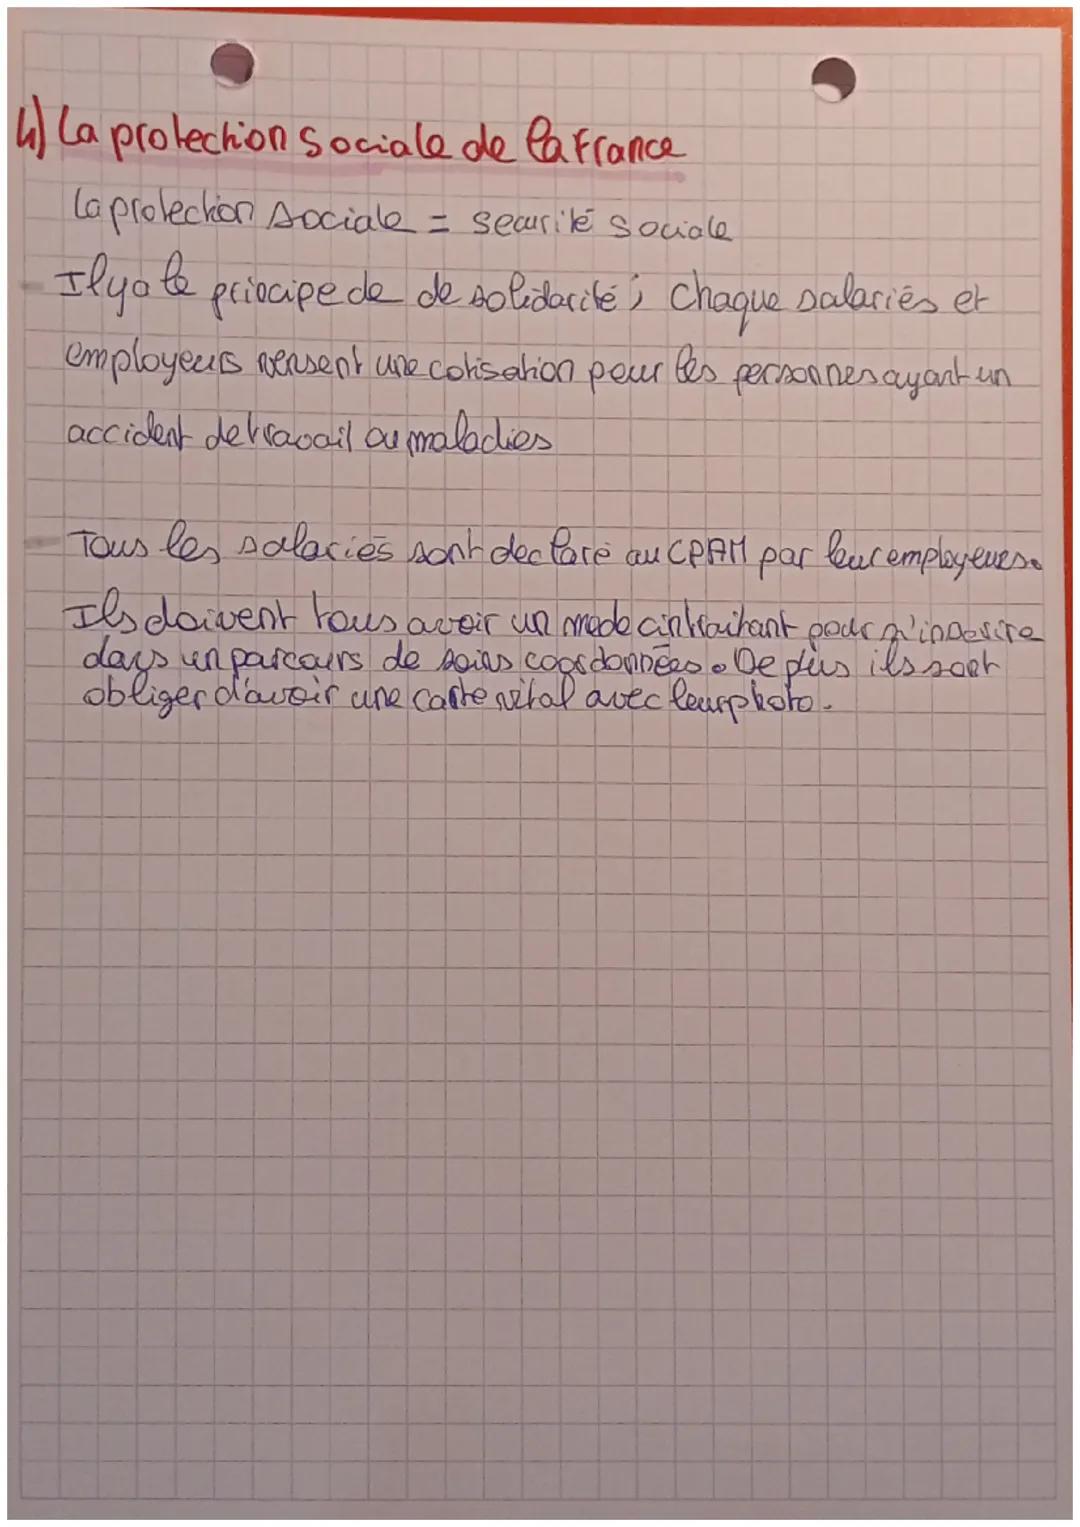 4) La protection sociale de la France
La protection sociale = securité sociale
Il y a le principe de de solidarité ; Chaque salariés et
employeurs versent une cotisation pour les personnes ayant un
accident de travail ou maladies
Tous les salariés sont declaré au CPAM par leur employeurs.
Ils doivent tous avoir un medecin traitant pour s'inscrire
dans un parcours de soins coordonnées. De plus ils sont
obliger d'avoir une carte vital avec leur photo.